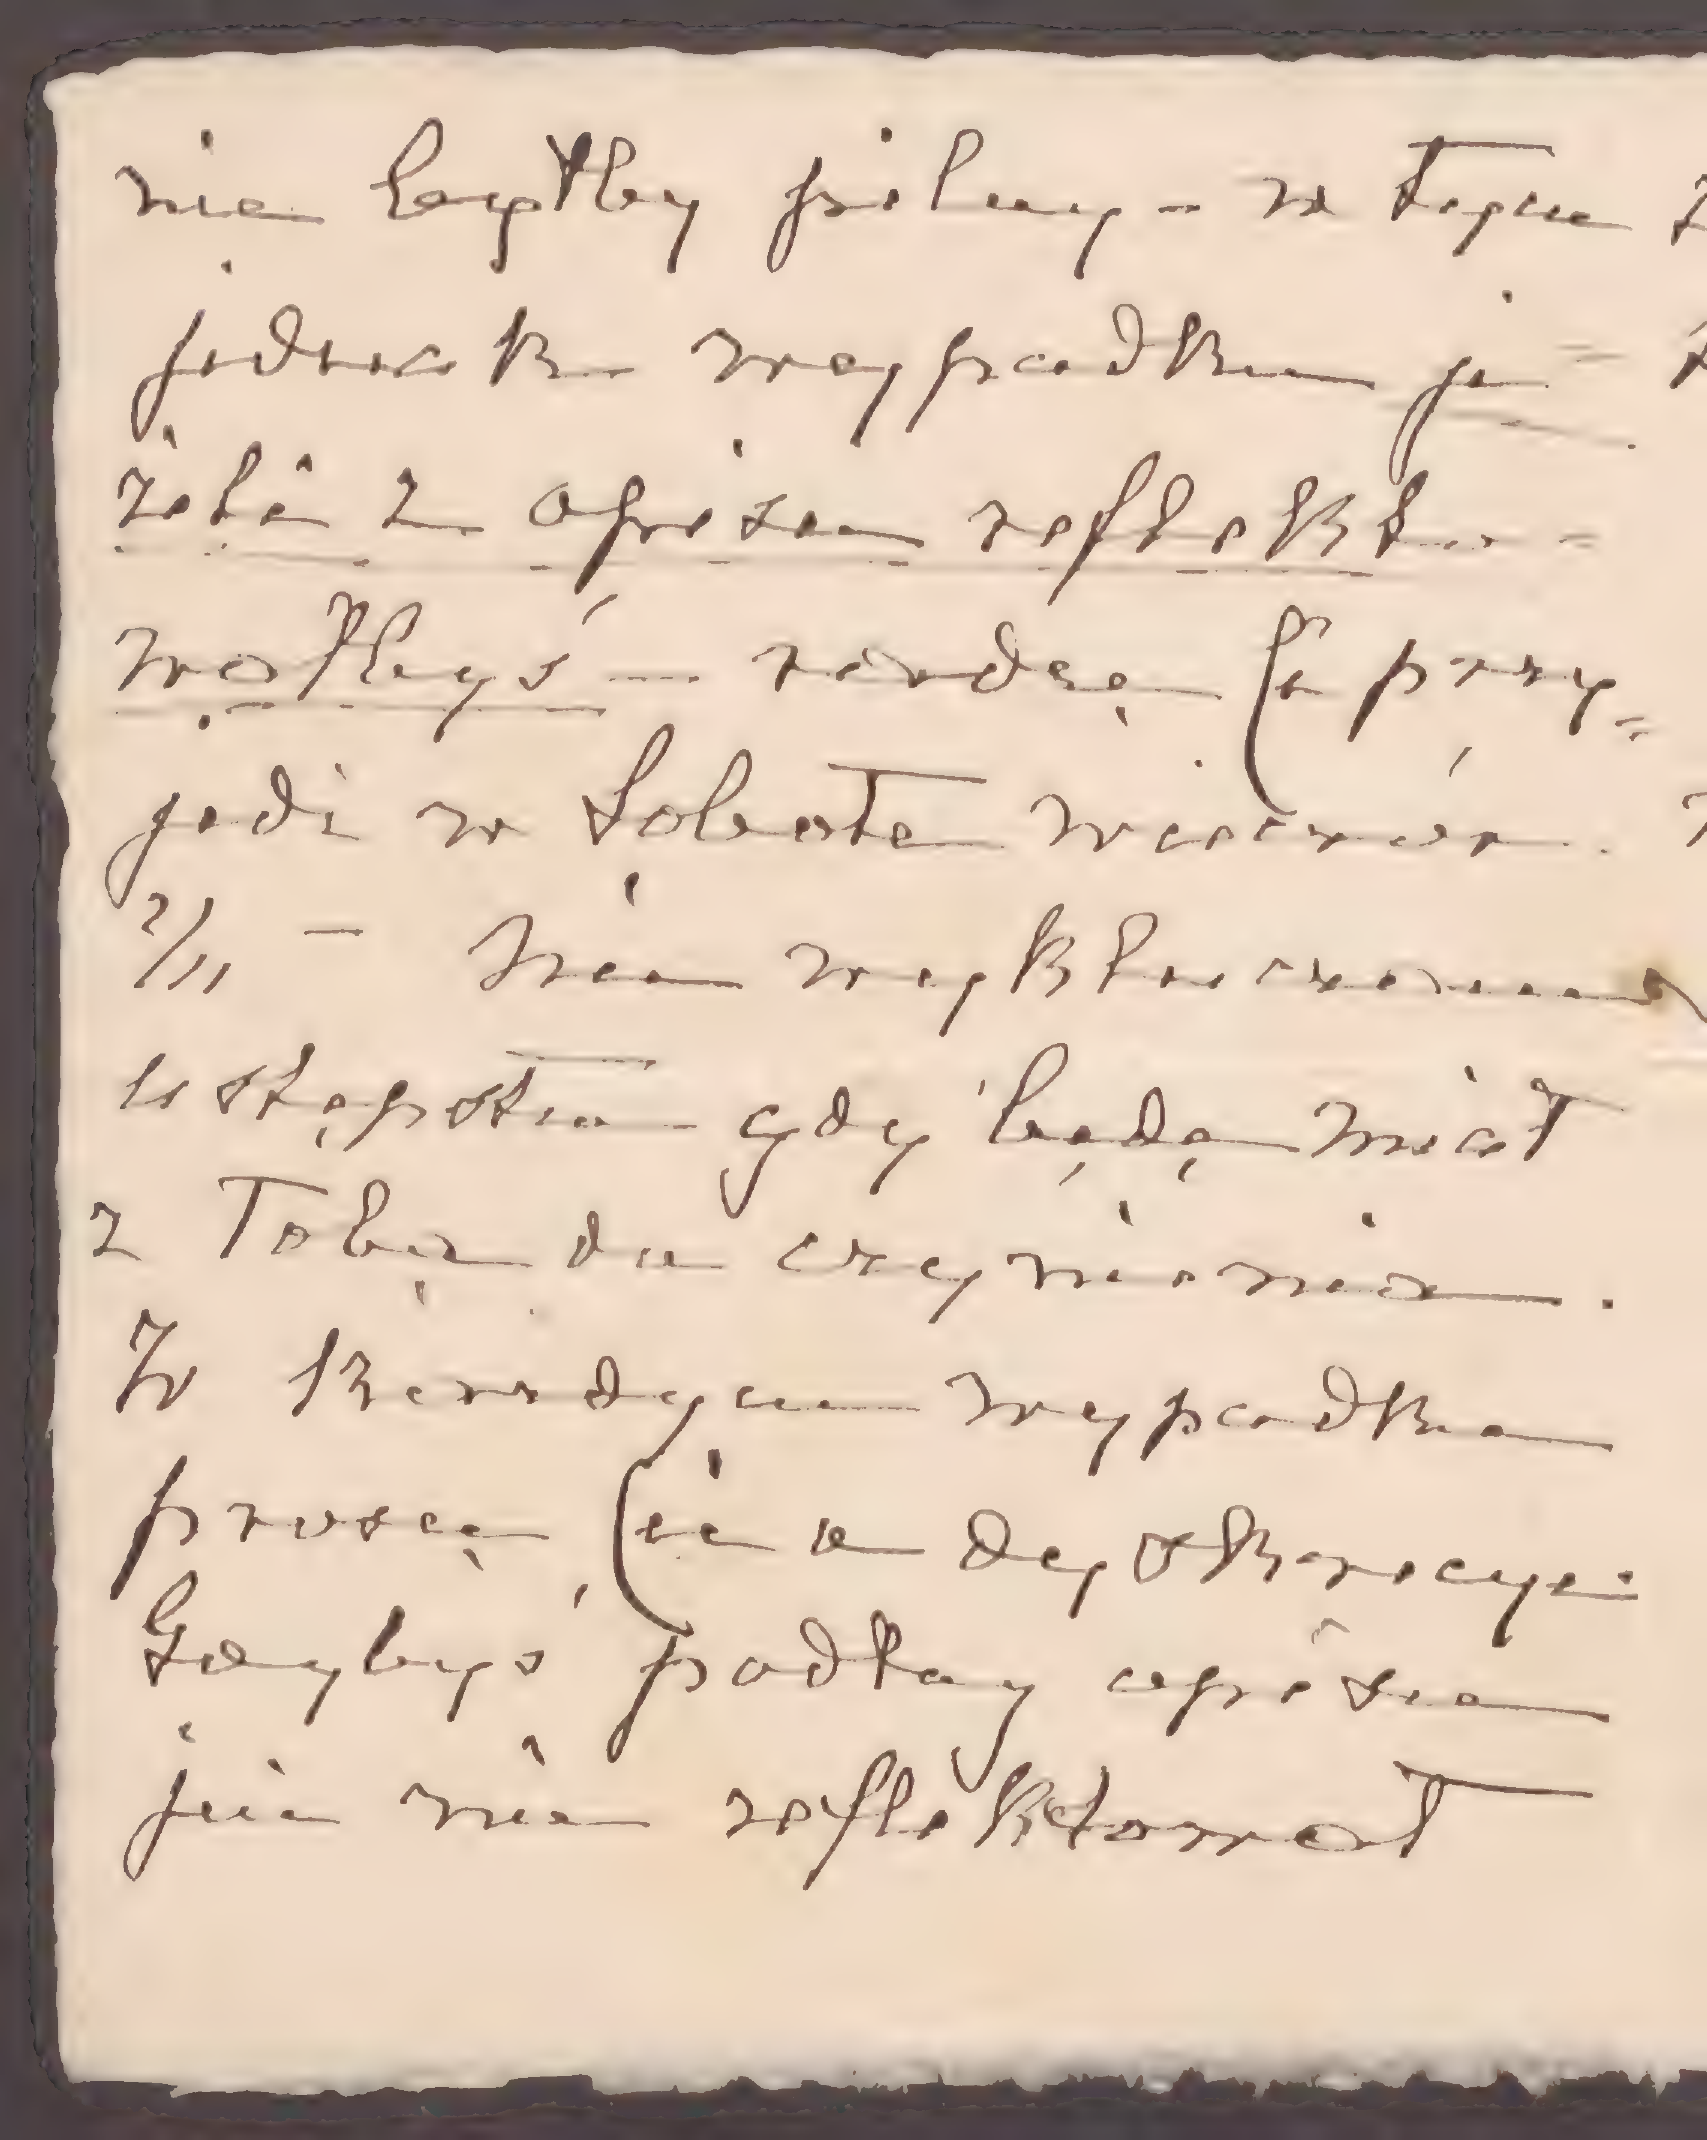 nie byłby pilny – w tym
jednak wypadku je-
żeli z opisu reflekto-
wałbyś – radzę Ci przy-
jedź w Sobotę wieczór.
2/11 – Nie wykluczone
ustępstwa gdy będę miał
z Tobą do czynienia.
W każdym wypadku
proszę Cię o dyskrecye.
Gdybyś podług opisu
już nie reflektował